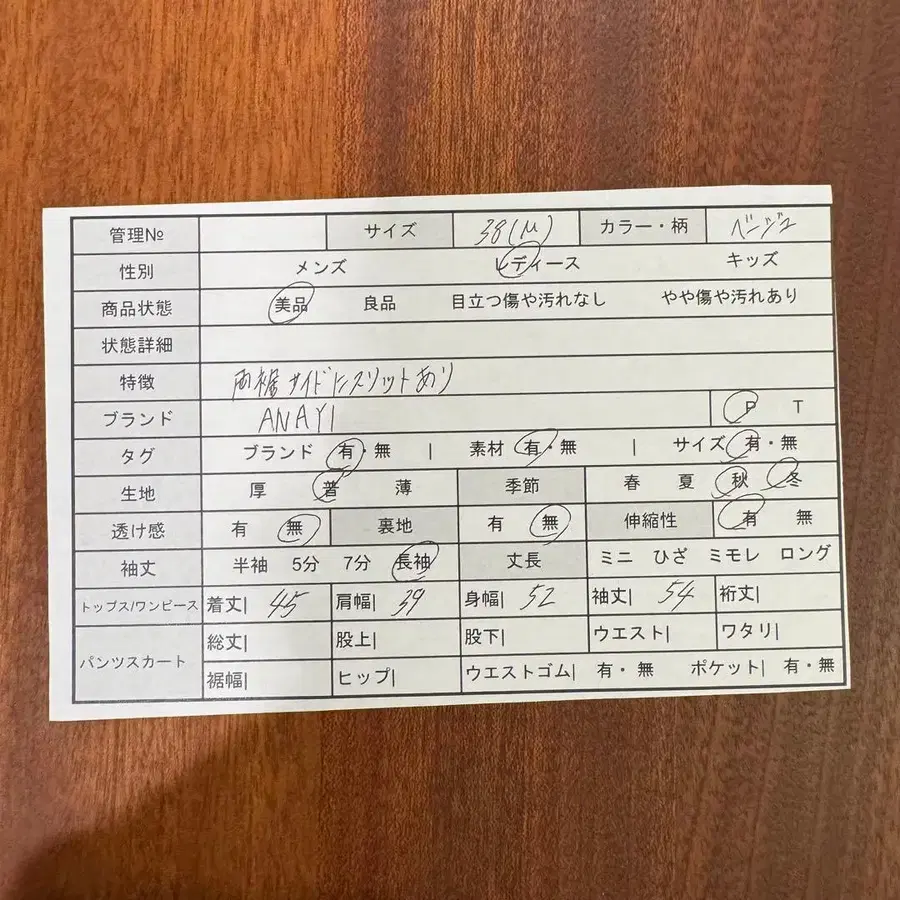 管理№ サイズ 38(M) カラー・柄 ベージュ
性別 メンズ レディース キッズ
商品状態 美品 良品 目立つ傷や汚れなし やや傷や汚れあり
状態詳細
特徴 両裾サイドにスリットあり
ブランド ANAYI P T
タグ ブランド 有・無 | 素材 有・無 | サイズ 有・無
生地 厚 普 薄 季節 春 夏 秋 冬
透け感 有 無 裏地 有 無 伸縮性 有 無
袖丈 半袖 5分 7分 長袖 丈長 ミニ ひざ ミモレ ロング
トップス/ワンピース 着丈| 45 肩幅| 39 身幅| 52 袖丈| 54 裄丈|
パンツスカート 総丈| 股上| 股下| ウエスト| ワタリ|
裾幅| ヒップ| ウエストゴム| 有・無 ポケット| 有・無